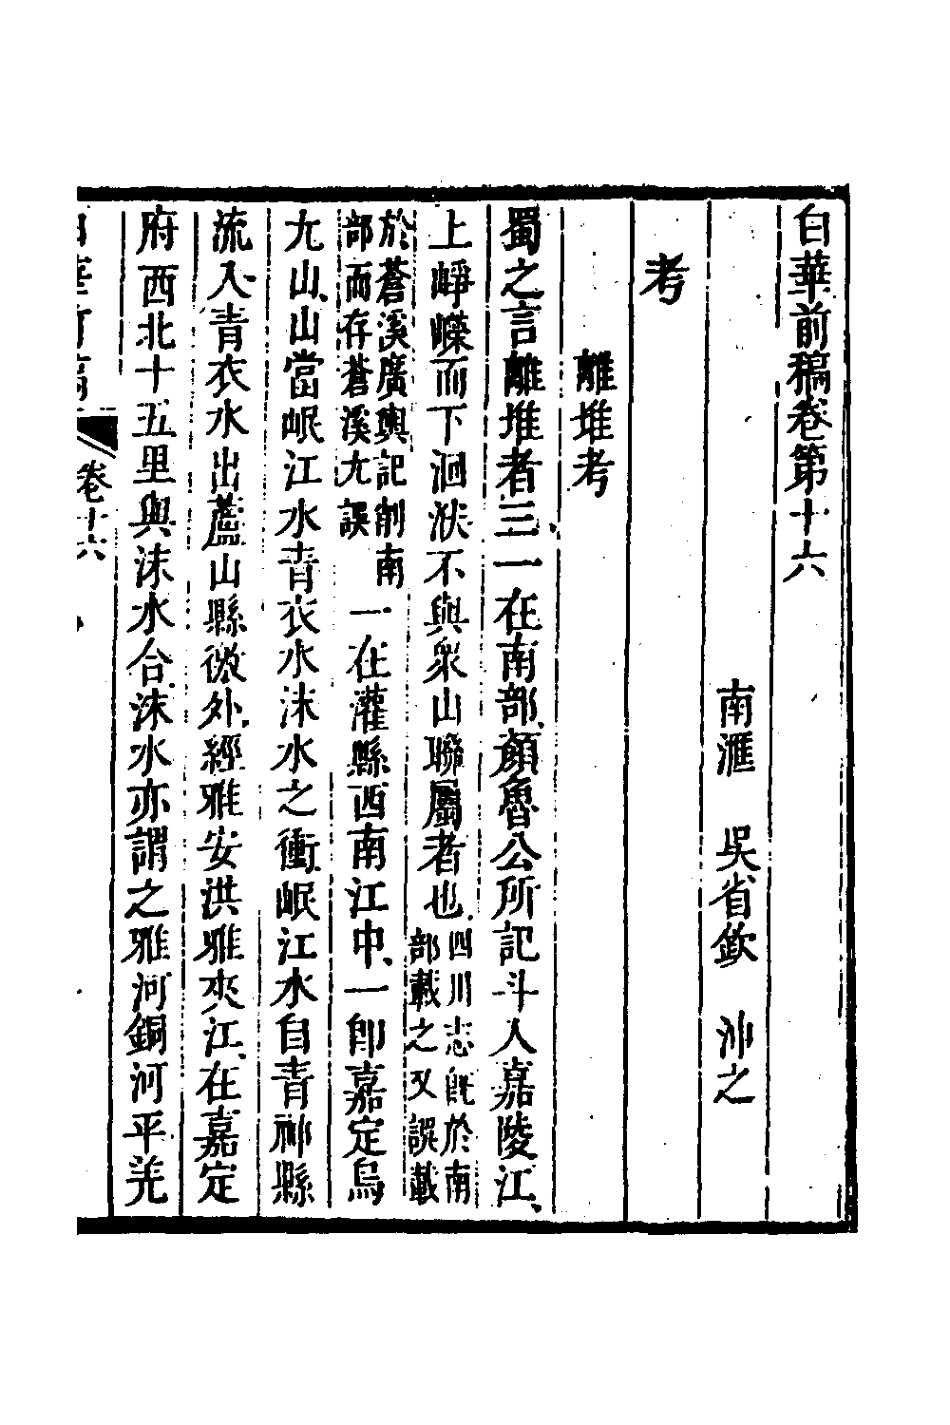 白華前稿卷第十六
南滙 吳省欽 沖之
考
離堆考
蜀之言離堆者三一在南部顏魯公所記斗入嘉陵江
上崢嶸而下洄洑不與衆山聯屬者也四川志旣於南
部載之又誤載
於蒼溪廣輿記削南
部而存蒼溪尤誤
一在灌縣西南江中一卽嘉定烏
尤山山當岷江水青衣水沫水之衝岷江水自青神縣
流入青衣水出蘆山縣徼外經雅安洪雅夾江在嘉定
府西北十五里與沫水合沫水亦謂之雅河銅河平羌
卷十六